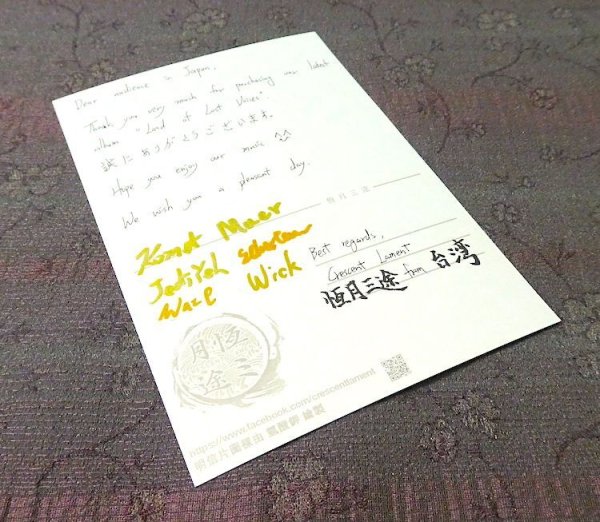 Dear audience in Japan,
Thank you very much for purchasing our latest
album "Land of Lost Voices".
誠にありがとうございます。
Hope you enjoy our music ^^
We wish you a pleasant day.
恒月三途
Komet Muer
Jedi Yeh
Wick
Best regards,
Crescent Lament
恒月三途 from 台湾
恒月三途
https://www.facebook.com/crescentlament
明信片圖樣由 繪製